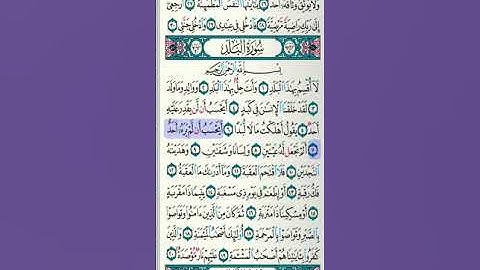 وَلَا يُوثِقُ وَثَاقَهُ أَحَدٌ ٢٦ يَا أَيَّتُهَا النَّفْسُ الْمُطْمَئِنَّةُ ٢٧ ارْجِعِي
إِلَى رَبِّكِ رَاضِيَةً مَّرْضِيَّةً ٢٨ فَادْخُلِي فِي عِبَادِي ٢٩ وَادْخُلِي جَنَّتِي ٣٠
سُورَةُ الْبَلَدِ
بِسْمِ اللَّهِ الرَّحْمَٰنِ الرَّحِيمِ
لَا أُقْسِمُ بِهَٰذَا الْبَلَدِ ١ وَأَنتَ حِلٌّ بِهَٰذَا الْبَلَدِ ٢ وَوَالِدٍ وَمَا وَلَدَ
٣ لَقَدْ خَلَقْنَا الْإِنسَانَ فِي كَبَدٍ ٤ أَيَحْسَبُ أَن لَّن يَقْدِرَ عَلَيْهِ
أَحَدٌ ٥ يَقُولُ أَهْلَكْتُ مَالًا لُّبَدًا ٦ أَيَحْسَبُ أَن لَّمْ يَرَهُ أَحَدٌ
٧ أَلَمْ نَجْعَل لَّهُ عَيْنَيْنِ ٨ وَلِسَانًا وَشَفَتَيْنِ ٩ وَهَدَيْنَاهُ
النَّجْدَيْنِ ١٠ فَلَا اقْتَحَمَ الْعَقَبَةَ ١١ وَمَا أَدْرَاكَ مَا الْعَقَبَةُ ١٢
فَكُّ رَقَبَةٍ ١٣ أَوْ إِطْعَامٌ فِي يَوْمٍ ذِي مَسْغَبَةٍ ١٤ يَتِيمًا ذَا مَقْرَبَةٍ
١٥ أَوْ مِسْكِينًا ذَا مَتْرَبَةٍ ١٦ ثُمَّ كَانَ مِنَ الَّذِينَ آمَنُوا وَتَوَاصَوْا
بِالصَّبْرِ وَتَوَاصَوْا بِالْمَرْحَمَةِ ١٧ أُولَٰئِكَ أَصْحَابُ الْمَيْمَنَةِ ١٨ وَالَّذِينَ
كَفَرُوا بِآيَاتِنَا هُمْ أَصْحَابُ الْمَشْأَمَةِ ١٩ عَلَيْهِمْ نَارٌ مُّؤْصَدَةٌ ٢٠